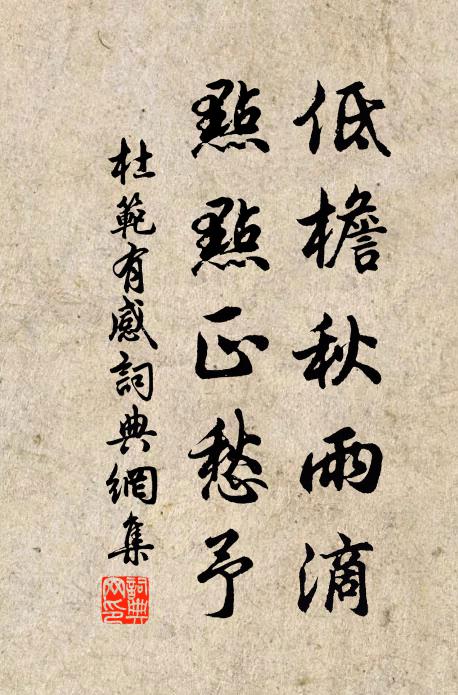 低檐秋雨滴
點點正愁予
杜範有感詞典網集
詞典
网印